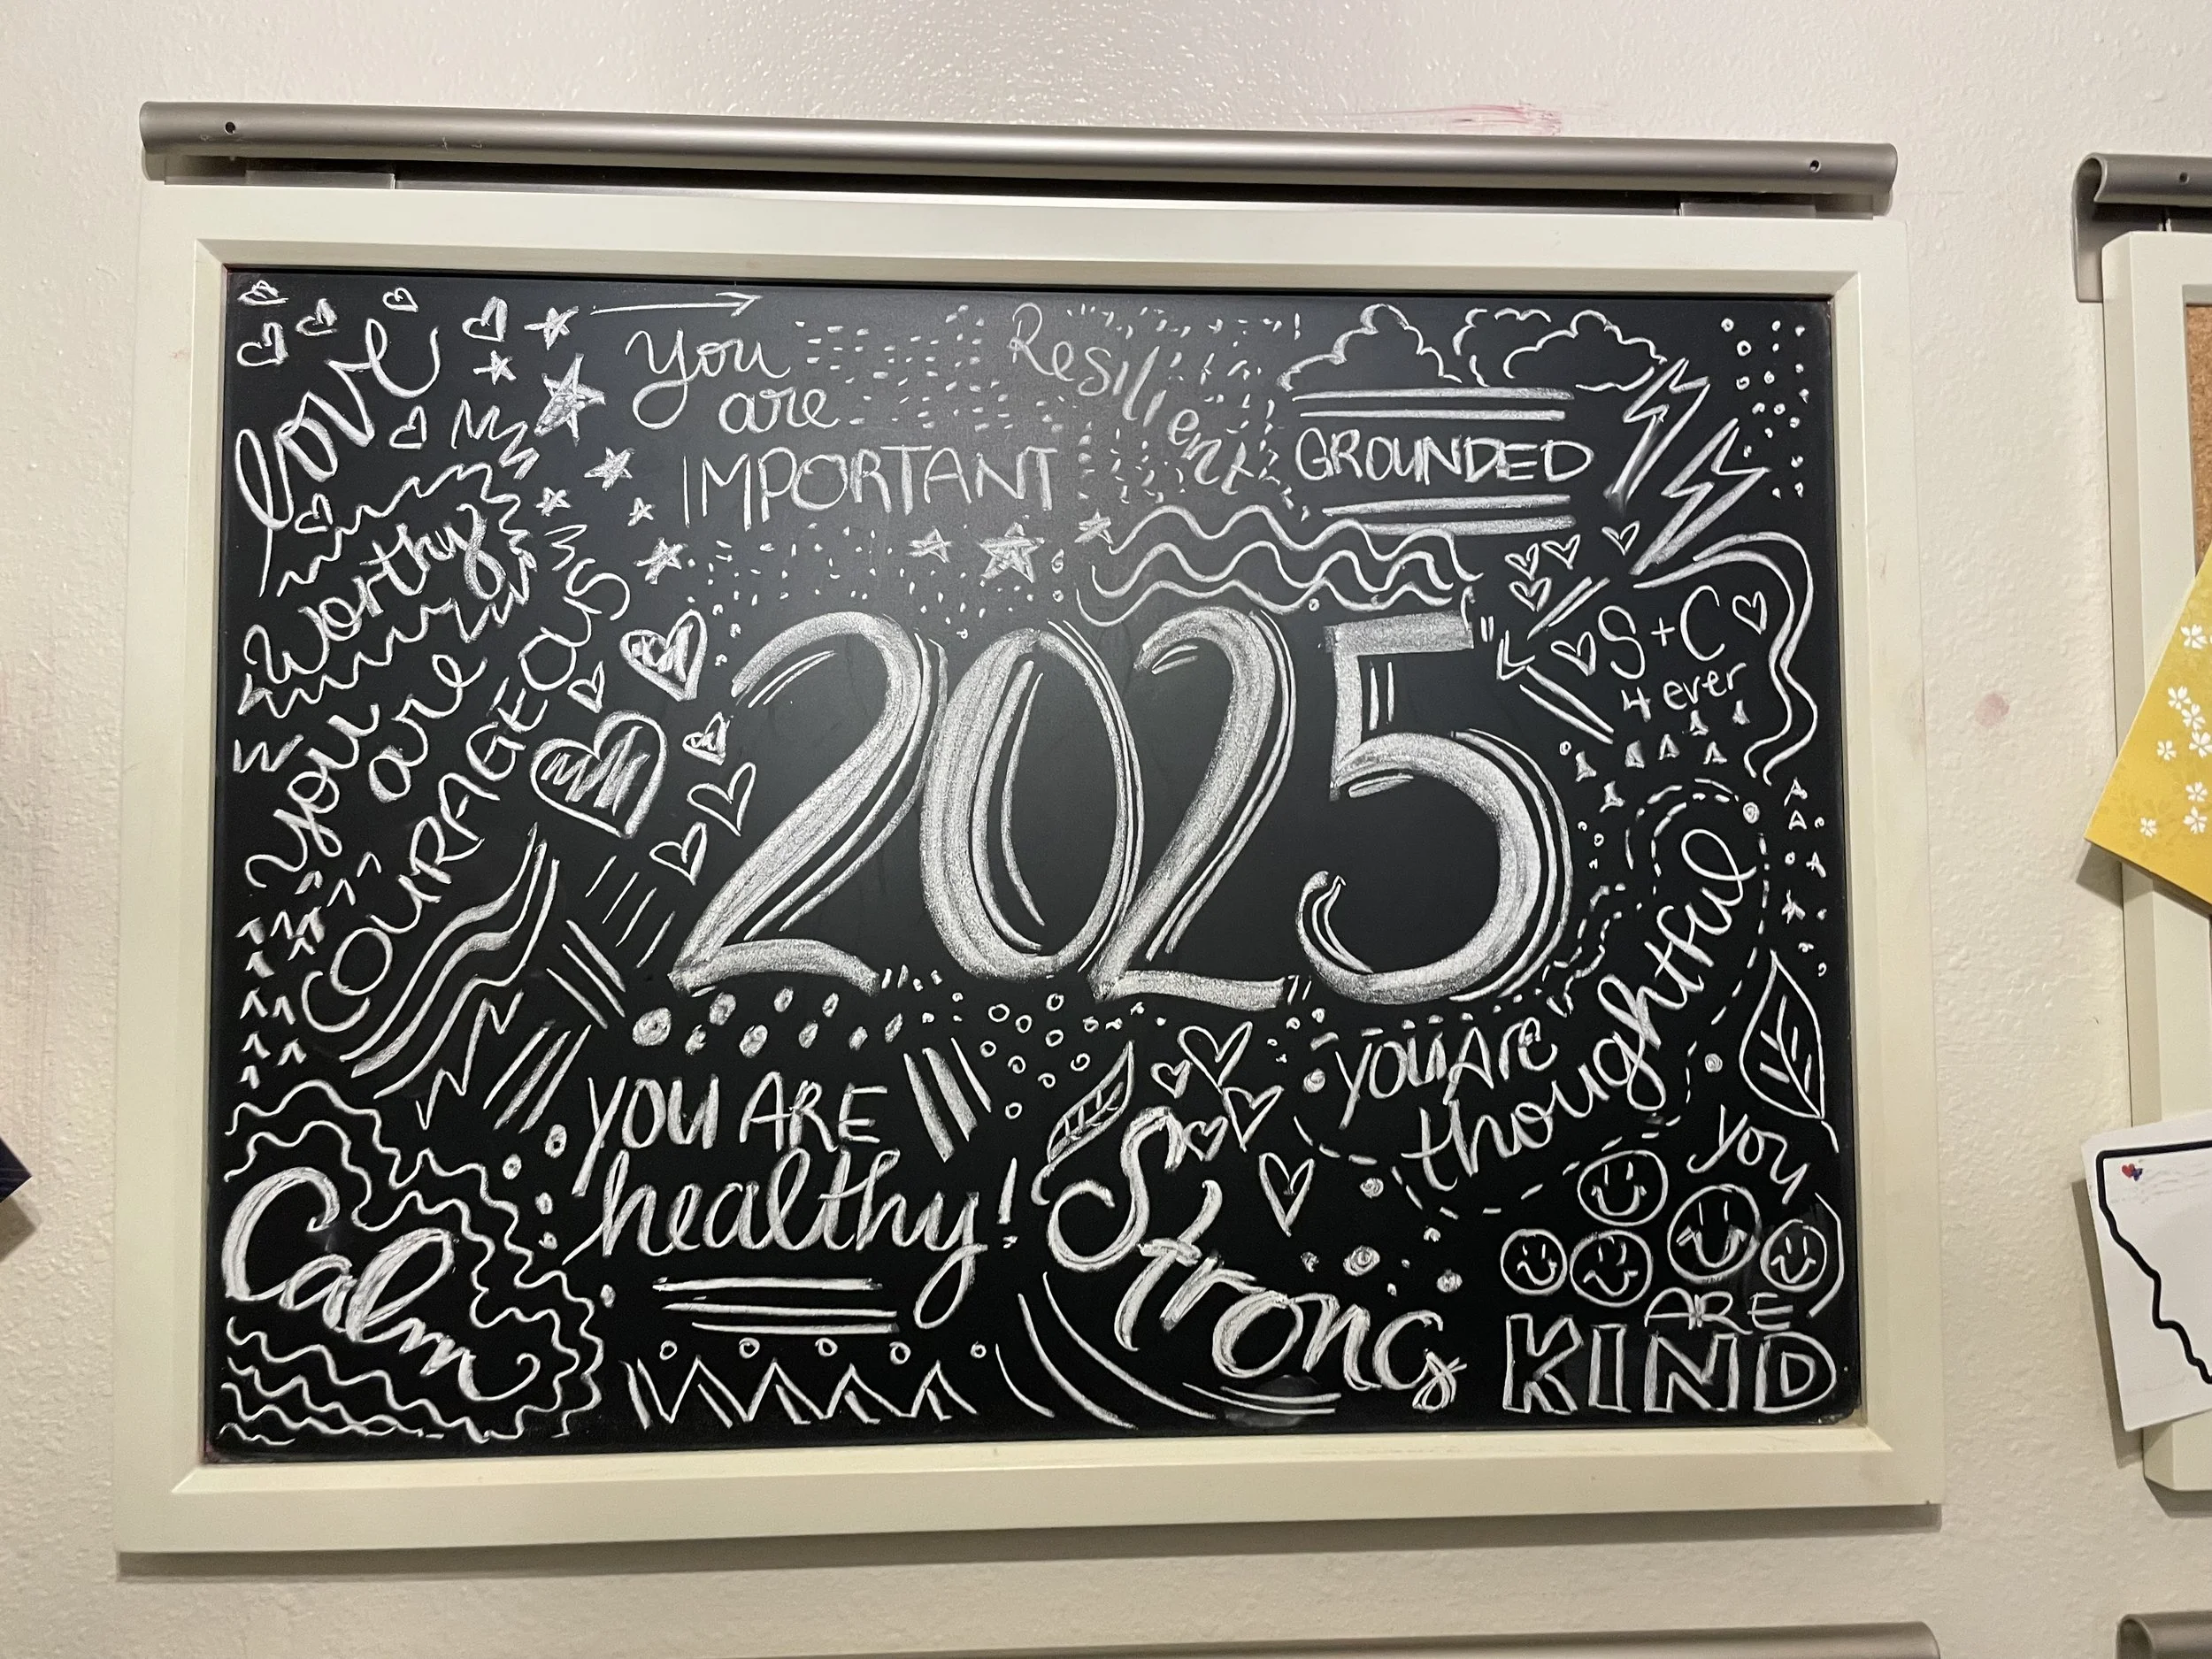 love
worthy
you
are
COURAGEOUS
you
are
IMPORTANT
Resilient
GROUNDED
2025
S+C
4 ever
Calm
YOU ARE
healthy!
Strong
YOU ARE
thoughtful
you
ARE
KIND